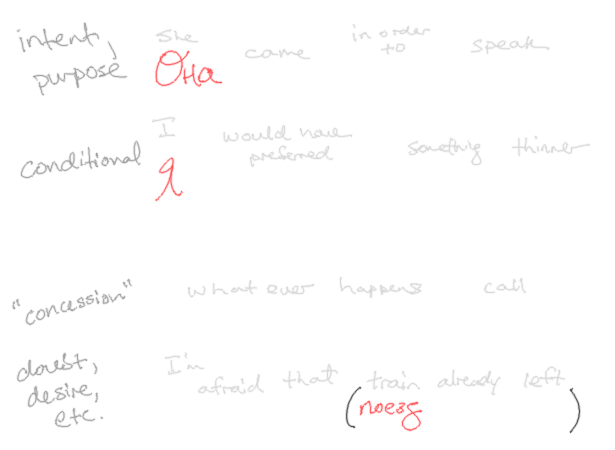 intent, purpose She came in order to speak
Она
conditional I would have preferred something thinner
Я
"concession" what ever happens call
doubt, desire, etc. I'm afraid that train already left
(поезд)